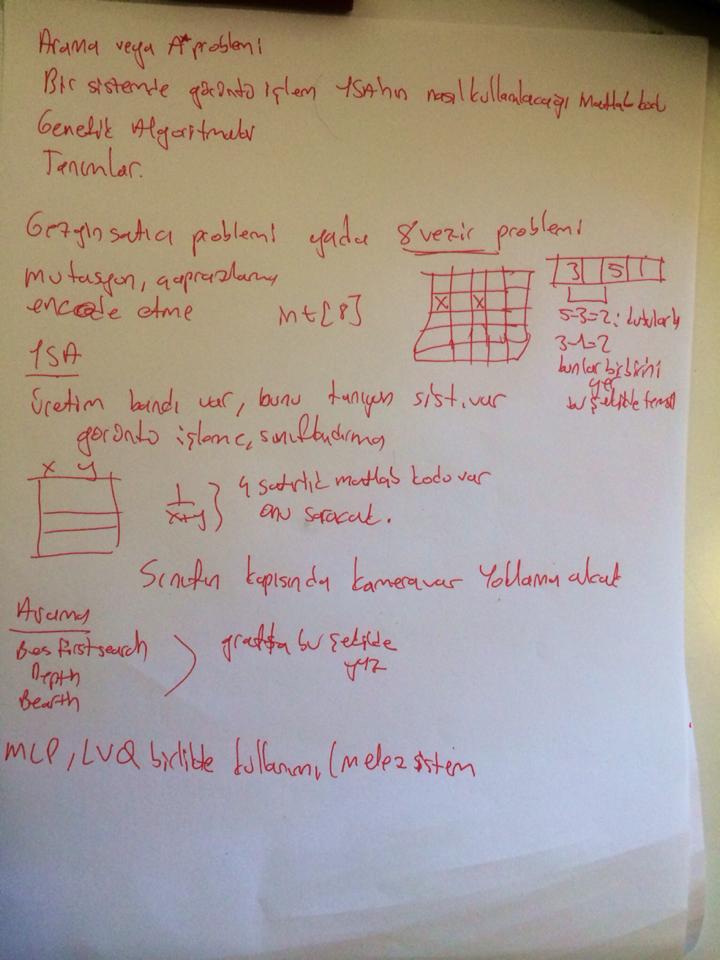 Arama veya A* problemi
Bir sistemde görüntü işlem YSA'nın nasıl kullanılacağı Matlab kodu
Genetik Algoritmalar
Tanımlar.
Gezgin satıcı problemi yada 8 vezir problemi
mutasyon, çaprazlama
encode etme int[8]
x x
3 5 1
5-3=2
3-1=2
bunlar birbirini
yer
bu şekilde temsil
YSA
Üretim bandı var, bunu tanıyan sist. var
görüntü işleme, sınıflandırma
x y
1/x+y } 4 satırlık matlab kodu var
onu soracak.
Sınıfın kapısında kamera var Yoklama alcak
Arama
Bes first search
Depth
Bearth
grafta bu şekilde
yaz
MLP, LVQ birlikte kullanımı, (melez sistem